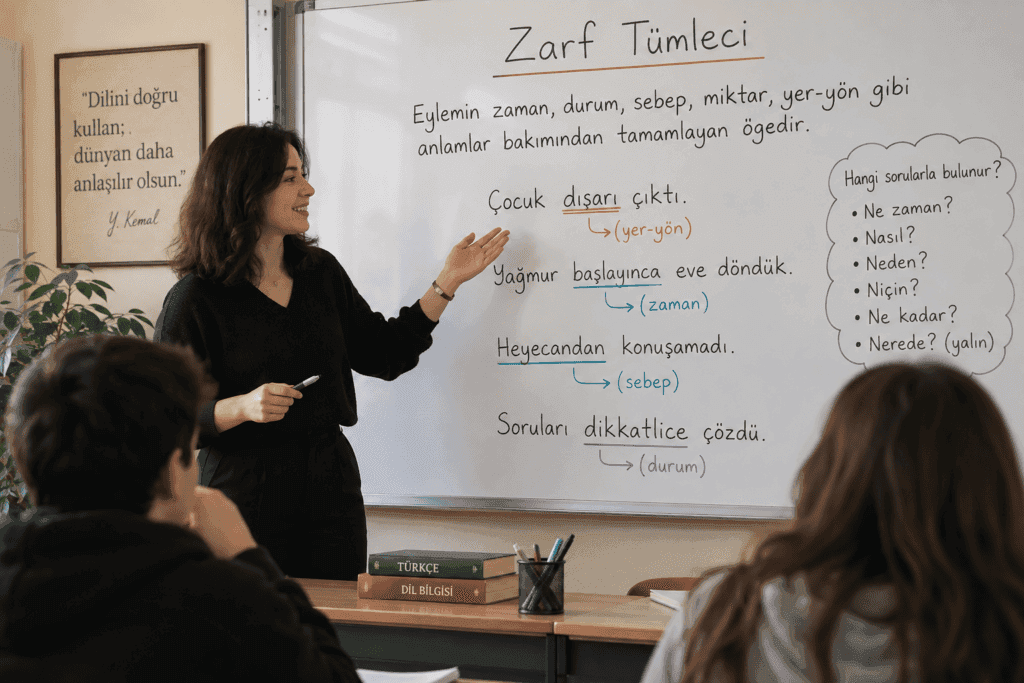 "Dilini doğru
kullan;
dünyan daha
anlaşılır olsun."
Y. Kemal
Zarf Tümleci
Eylemin zaman, durum, sebep, miktar, yer-yön gibi
anlamlar bakımından tamamlayan ögedir.
Çocuk dışarı çıktı.
(yer-yön)
Yağmur başlayınca eve döndük.
(zaman)
Heyecandan konuşamadı.
(sebep)
Soruları dikkatlice çözdü.
(durum)
Hangi sorularla bulunur?
• Ne zaman?
• Nasıl?
• Neden?
• Niçin?
• Ne kadar?
• Nerede? (yalın)
TÜRKÇE
DİL BİLGİSİ